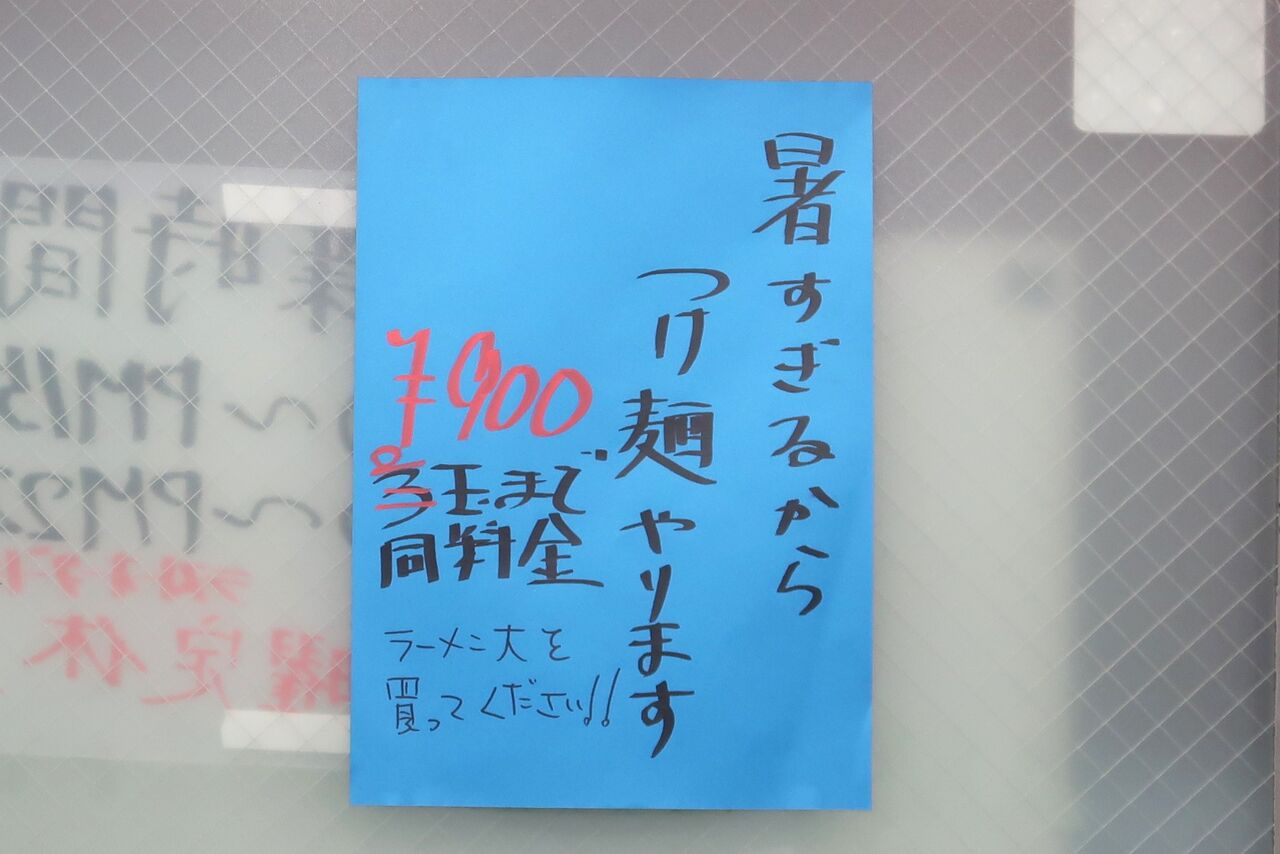 暑すぎるから
つけ麺やります
¥900
2玉まで
同料金
ラーメン大を
買ってください!!
業時間
〜PM15
〜PM2
曜定休